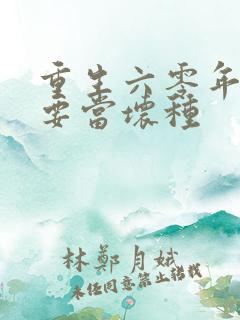 重生六零年
要當壞種
林鄭月娥
未经同意禁止搭我